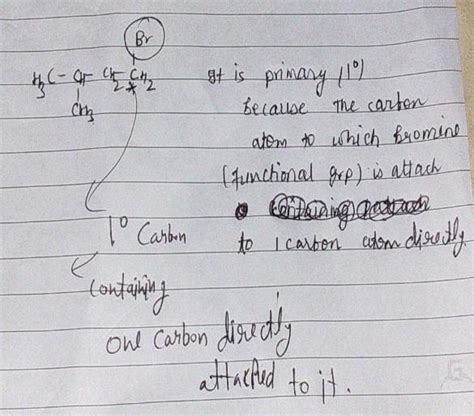 Br
H₃C - CH - CH₂ - CH₂
*
CH₃
It is primary (1°)
because the carbon
atom to which Bromine
(functional grp) is attach
to 1 carbon atom directly
1° Carbon
containing
one carbon directly
attached to it.